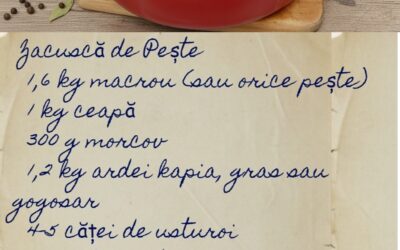 Zacuscă de Pește
1,6 kg macrou (sau orice pește)
1 kg ceapă
300 g morcov
1,2 kg ardei kapia, gras sau
gogosar
4-5 căței de usturoi